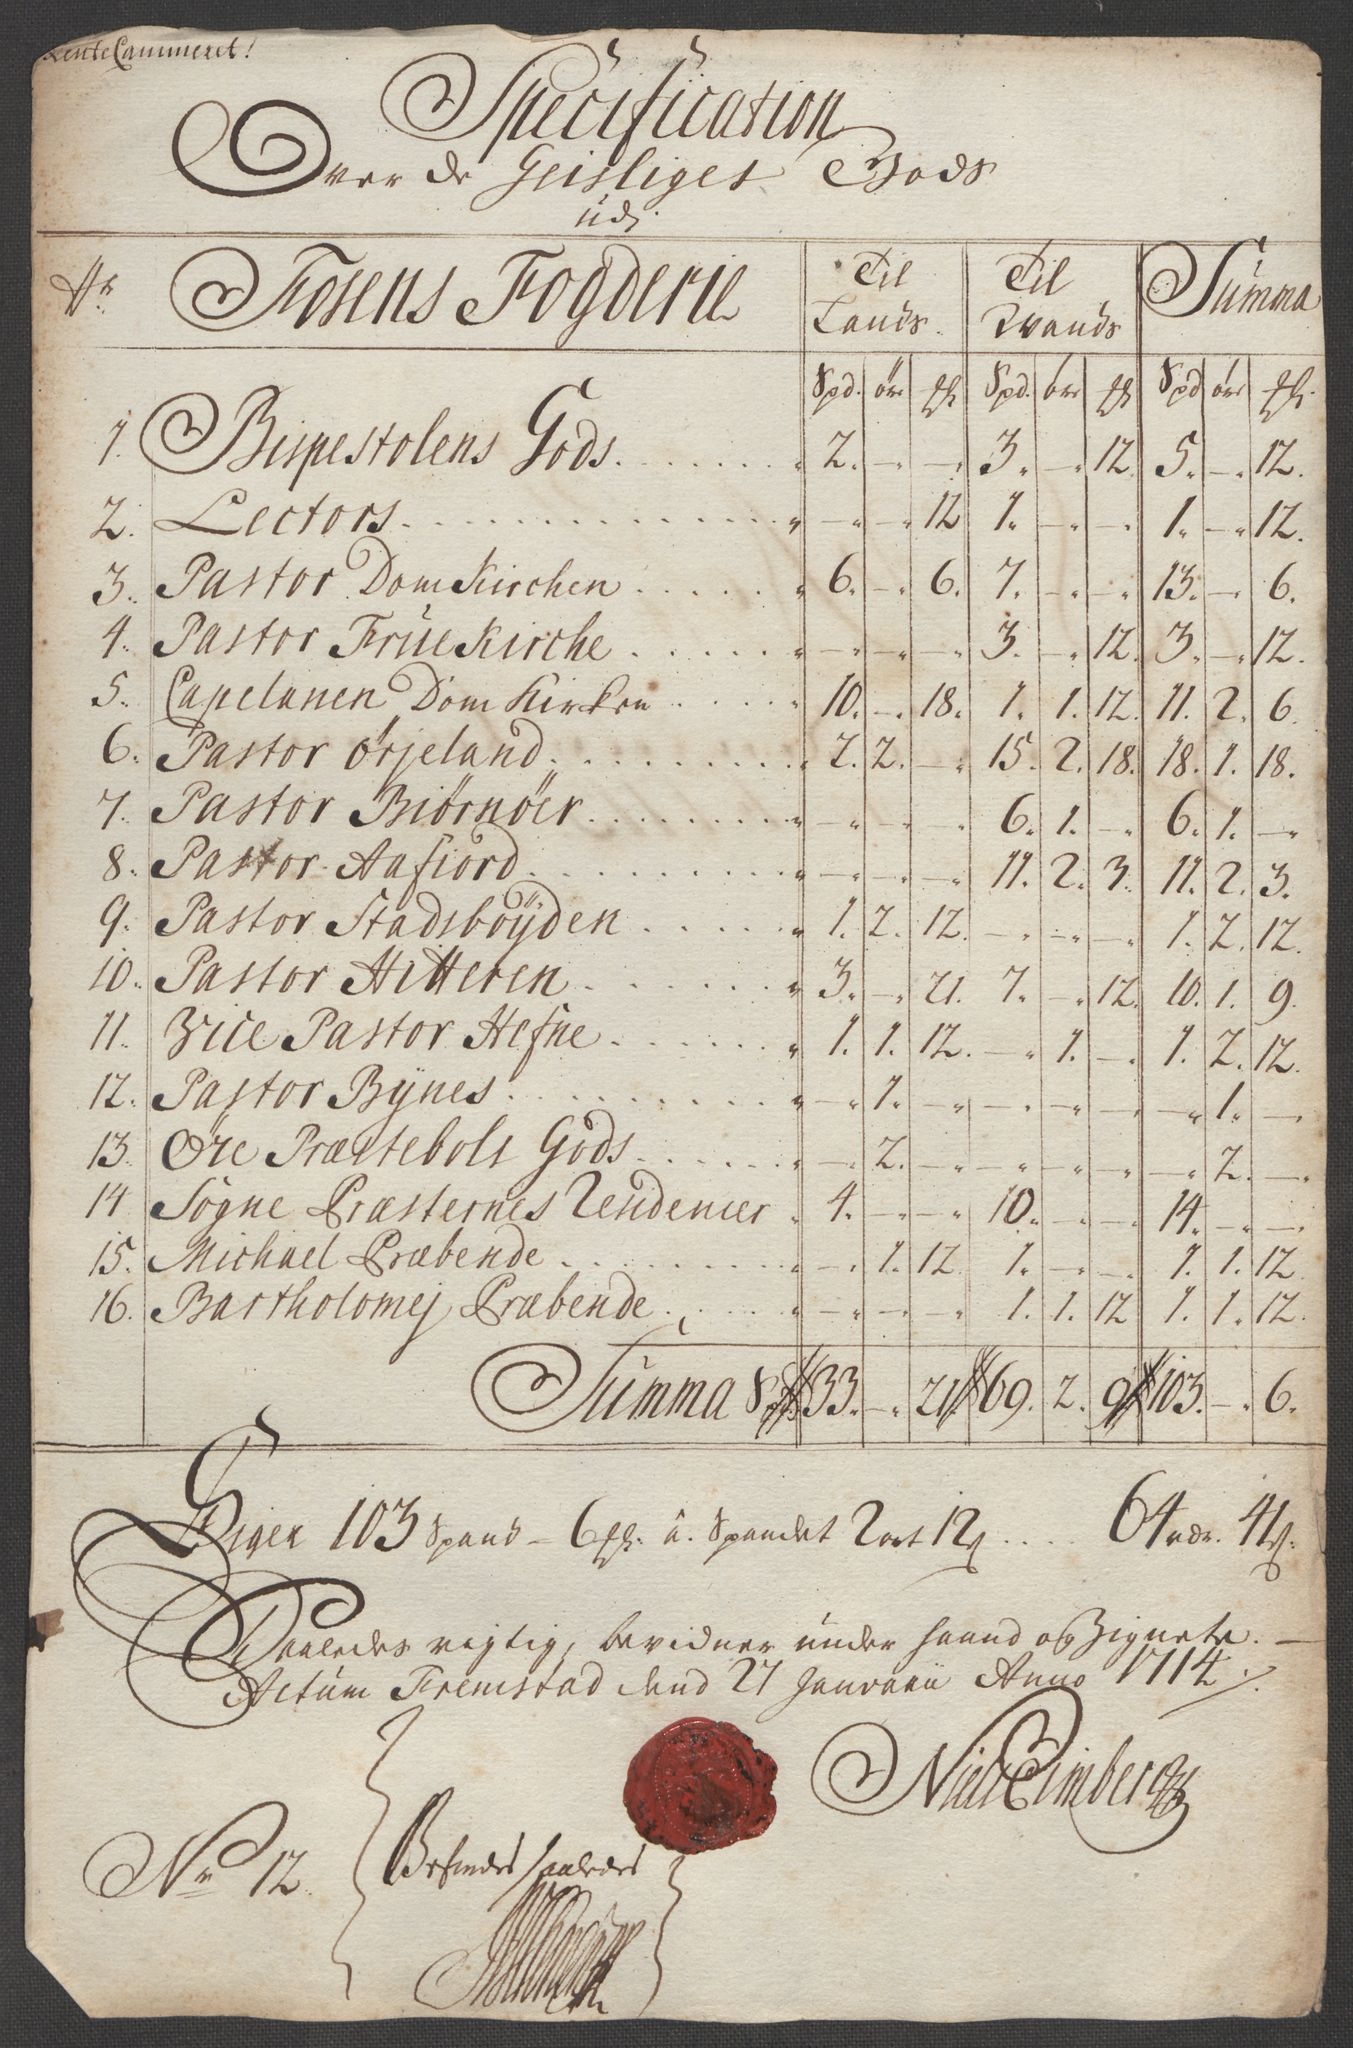 RenteCammeret!
Specification
Over de Geistliges Gods
udj
Nr. Fosens Fogderie Til Lands. Til Vands Summa
Spd. öre Spd. öre Spd öre
1. Bispestolens Gods. 2. - - 3. - 12. 5. - 12.
2. Lectors. - - 12 1. - - 1. - 12.
3. Pastor DomKirchen 6. - 6. 7. - - 13. - 6.
4. Pastor FrueKirche - - - 3. - 12. 3. - 12.
5. Capelanen Dom Kirken 10. - 18. 1. 1. 12. 11. 2. 6.
6. Pastor Ørjeland. 2. 2. - 15. 2. 18. 18. 1. 18.
7. Pastor Biörnöer - - - 6. 1. - 6. 1. -
8. Pastor Aafiord - - - 11. 2. 3. 11. 2. 3.
9. Pastor Stadsböyden 1. 2. 12. - - - 1. 2. 12.
10. Pastor Hitteren 3. - 21. 7. - 12. 10. 1. 9.
11. Vice Pastor Hefne 1. 1. 12. - 1. - 1. 2. 12.
12. Pastor Bÿnes - 1. - - - - - 1. -
13. Öre Præstebols Gods - 2. - - - - - 2. -
14 Sogne Præsternes Residencier 4. - - 10. - - 14. - -
15. Michael Præbende - 1. 12 1. - - 1. 1. 12
16. Bartholomej Præbende - - - 1. 1. 12 1. 1. 12.
Summa Spd 33. - 21 69. 2. 9 103. - 6.
Siger 103 Spand - 6 à Spandet 2 ort 12 64 rdr. 4
Saaledes rigtig, bevidner under Haand og Zignete.
Actum Fremstad dend 27 Januarii Anno 1714
Niels Eimberg
Nr 12. Befindes saaledes